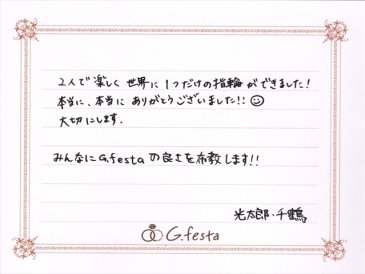 2人で楽しく世界に1つだけの指輪ができました!
本当に、本当にありがとうございました!!
大切にします.
みんなにG.festaの良さを布教します!!
光太郎・千鶴
G.festa